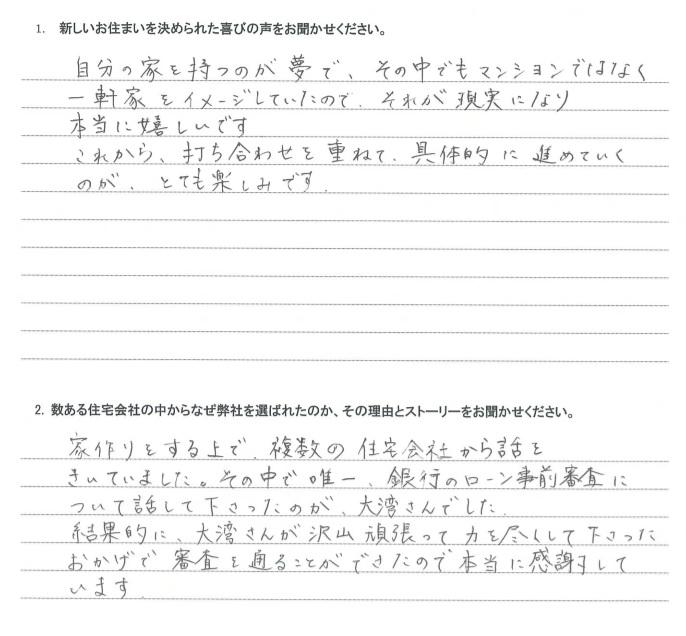 1. 新しいお住まいを決められた喜びの声をお聞かせください。
自分の家を持つのが夢で、その中でもマンションではなく
一軒家をイメージしていたので、それが現実になり
本当に嬉しいです
これから、打ち合わせを重ねて、具体的に進めていく
のが、とても楽しみです.
2. 数ある住宅会社の中からなぜ弊社を選ばれたのか、その理由とストーリーをお聞かせください。
家作りをする上で、複数の住宅会社から話を
きいていました。その中で唯一、銀行のローン事前審査に
ついて話して下さったのが、大湾さんでした.
結果的に、大湾さんが沢山頑張って力を尽くして下さった
おかげで審査を通ることができたので本当に感謝して
います.